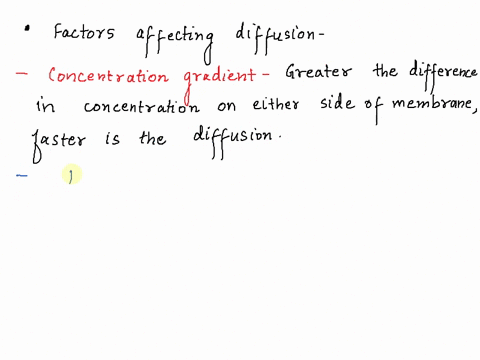 • Factors affecting diffusion-
- Concentration gradient - Greater the difference
in concentration on either side of membrane,
faster is the diffusion.
-